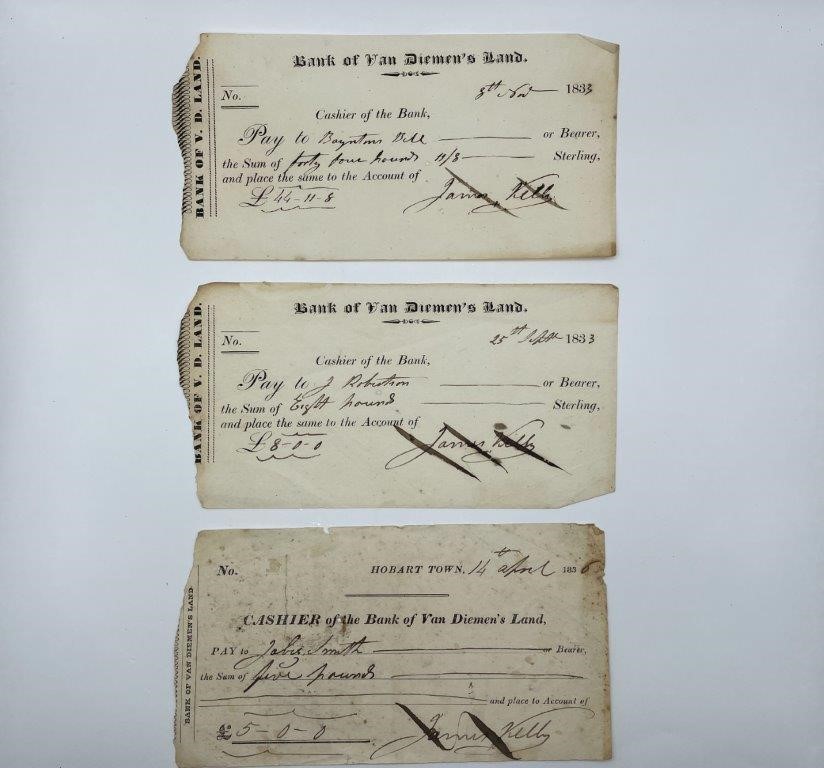 BANK OF V. D. LAND.
Bank of Van Diemen's Land.
No. 8th Nov 1833
Cashier of the Bank,
Pay to Boyntons Bill or Bearer,
the Sum of forty four pounds 11/8 Sterling,
and place the same to the Account of
£ 44-11-8 James Kelly
BANK OF V. D. LAND.
Bank of Van Diemen's Land.
No. 25th Sept 1833
Cashier of the Bank,
Pay to J Robertson or Bearer,
the Sum of Eight pounds Sterling,
and place the same to the Account of
£ 8-0-0 James Kelly
BANK OF VAN DIEMEN'S LAND
No. HOBART TOWN, 14th April 1836
CASHIER of the Bank of Van Diemen's Land,
PAY to Smith or Bearer,
the Sum of five pounds
and place to Account of
£ 5-0-0 James Kelly